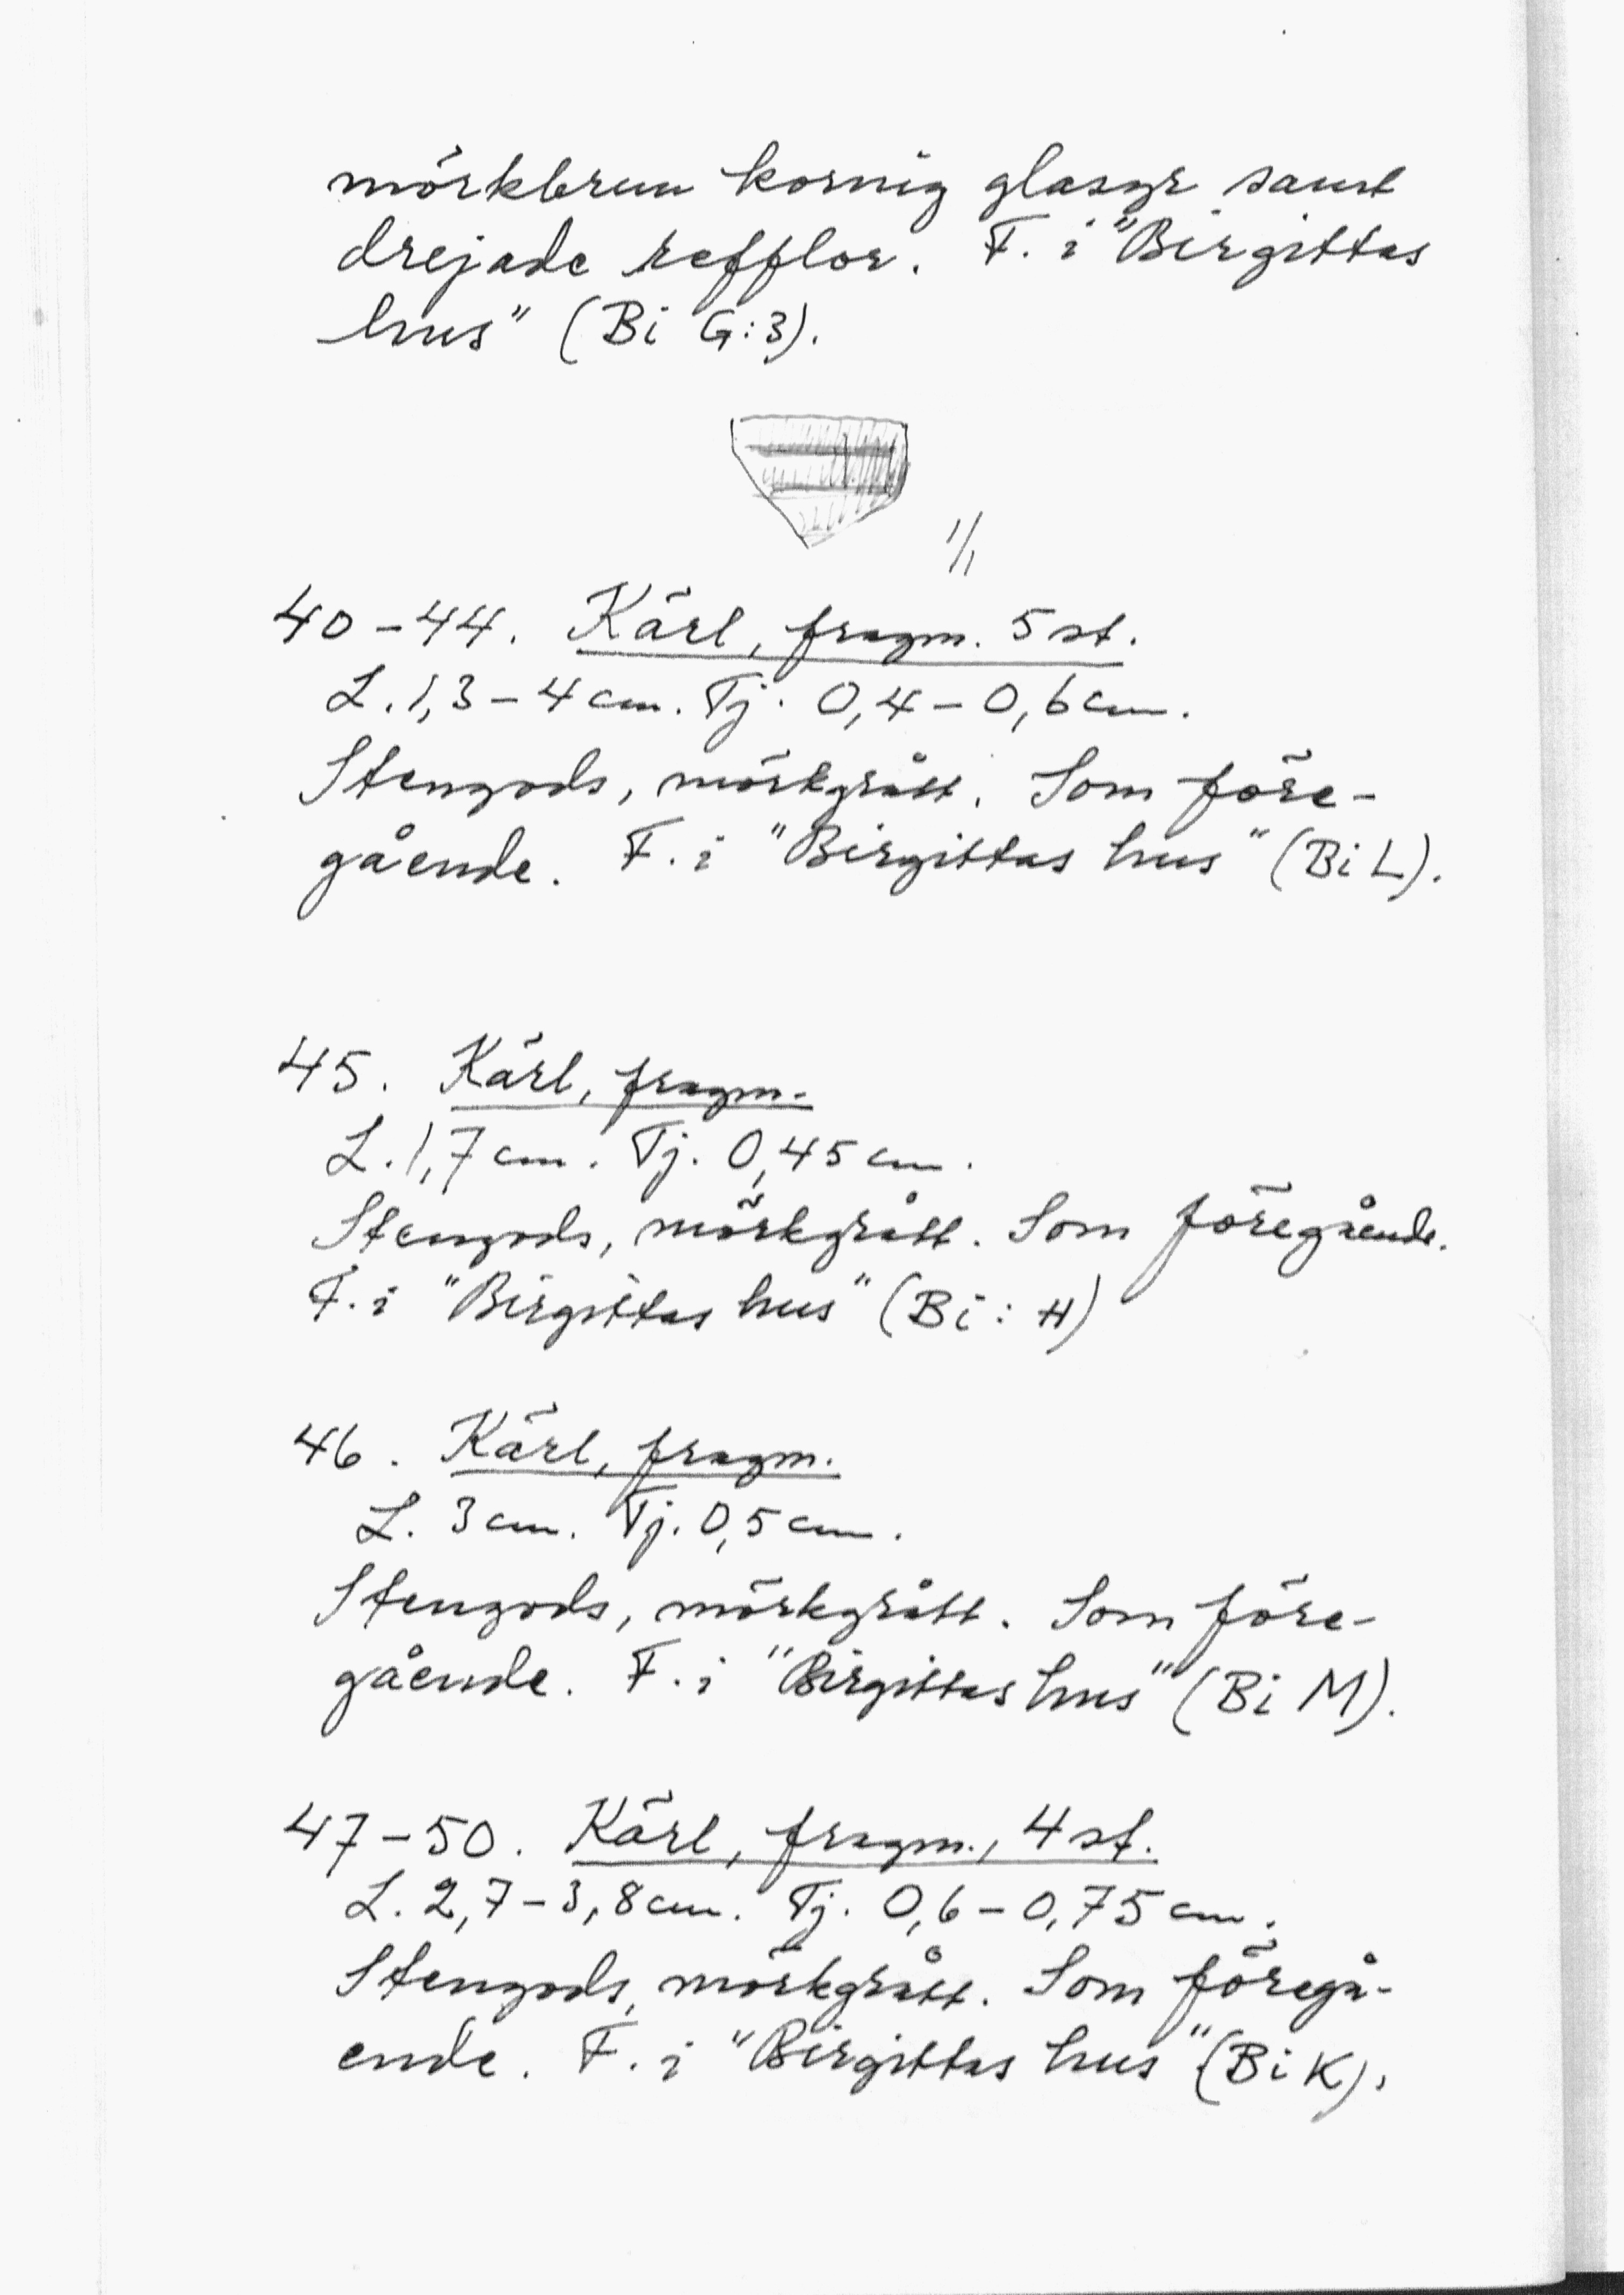 mörkbrun kornig glasyr samt
drejade refflor. F. i "Birgittas
hus" (Bi G:3).
1/1
40-44. Kärl, fragm. 5 st.
L. 1,3-4 cm. Tj. 0,4-0,6 cm.
Stengods, mörkgrått. Som före-
gående. F. i "Birgittas hus" (Bi L).
45. Kärl, fragm.
L. 1,7 cm. Tj. 0,45 cm.
Stengods, mörkgrått. Som föregående.
F. i "Birgittas hus" (Bi : H)
46. Kärl, fragm.
L. 3 cm. Tj. 0,5 cm.
Stengods, mörkgrått. Som före-
gående. F. i "Birgittas hus" (Bi M).
47-50. Kärl, fragm., 4 st.
L. 2,7-3,8 cm. Tj. 0,6-0,75 cm.
Stengods, mörkgrått. Som föregå-
ende. F. i "Birgittas hus" (Bi K).